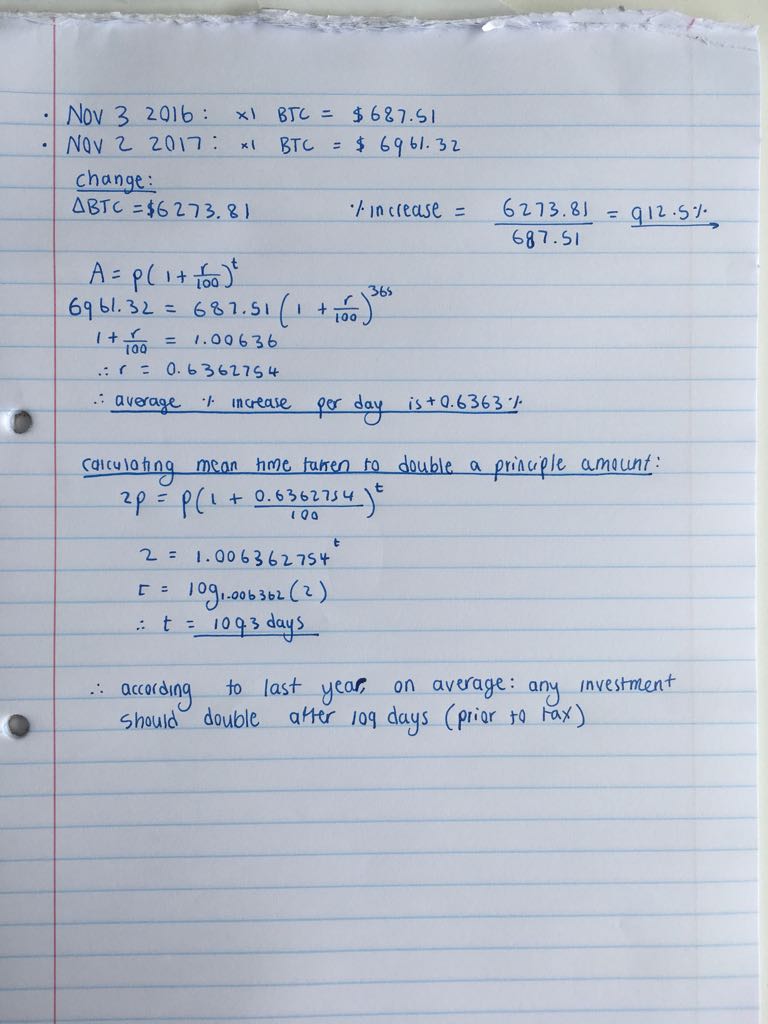 · Nov 3 2016: x1 BTC = $687.51
· Nov 2 2017: x1 BTC = $ 6961.32
change:
ΔBTC = $6273.81 % increase = 6273.81/687.51 = 912.5%
A = p(1 + r/100)^t
6961.32 = 687.51(1 + r/100)^365
1 + r/100 = 1.00636
∴ r = 0.6362754
∴ average % increase per day is +0.6363%
calculating mean time taken to double a principle amount:
2p = p(1 + 0.6362754/100)^t
2 = 1.006362754^t
t = log₁.₀₀₆₃₆₂(2)
∴ t = 109.3 days
∴ according to last year, on average: any investment
should double after 109 days (prior to tax)